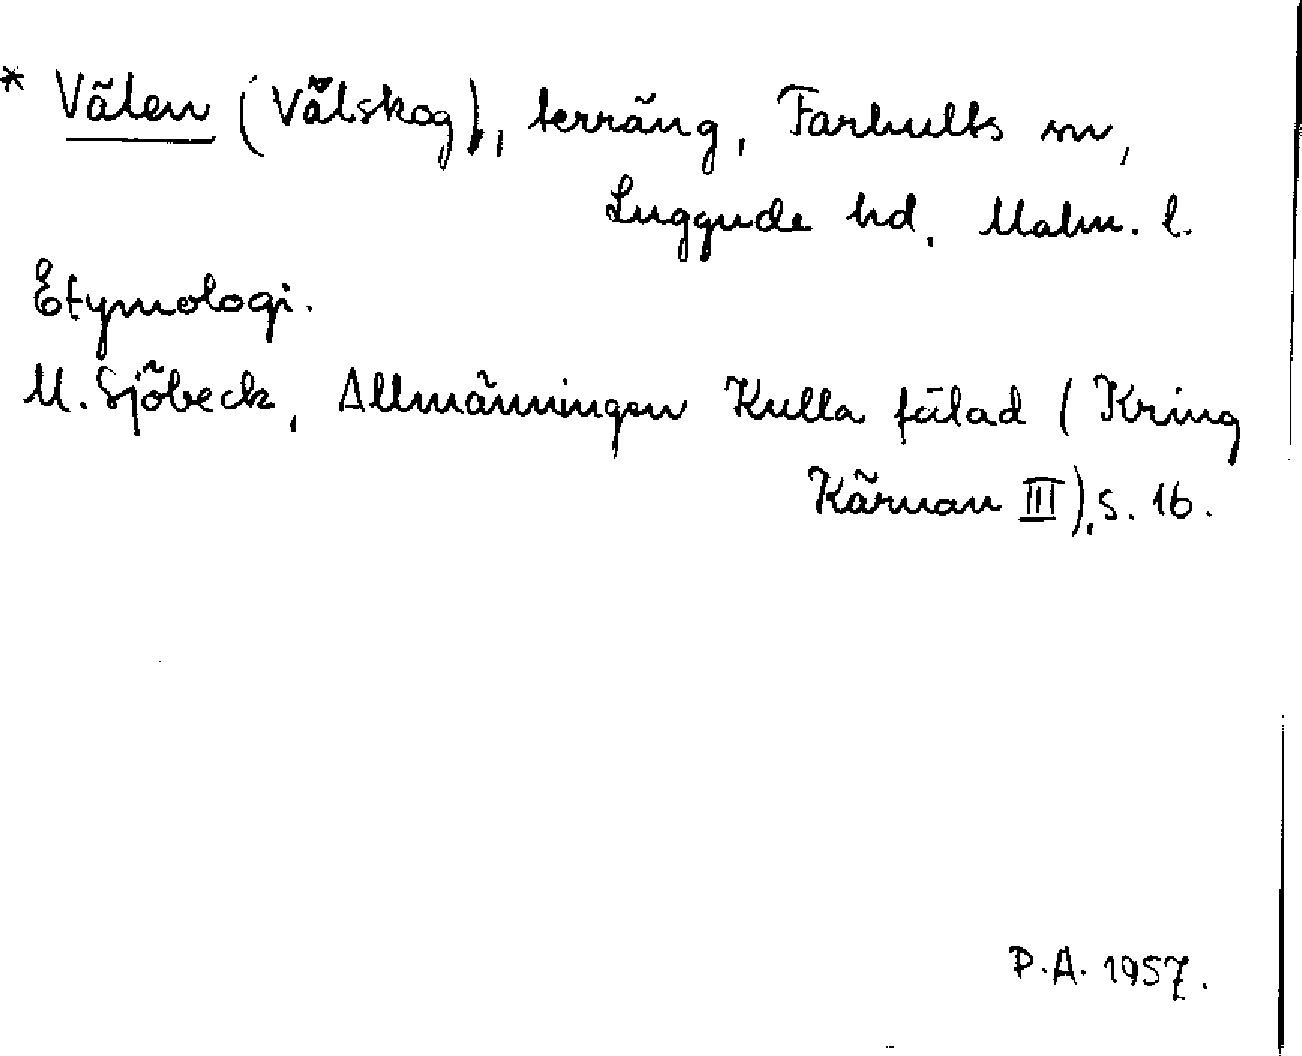 * Välen (Vålskog), terräng, Farhults sn,
Luggude hd, Malm. l.
Etymologi.
M. Sjöbeck, Allmänningen Kulla fälad (Kring
Kärnan III), s. 16.
P.A. 1957.